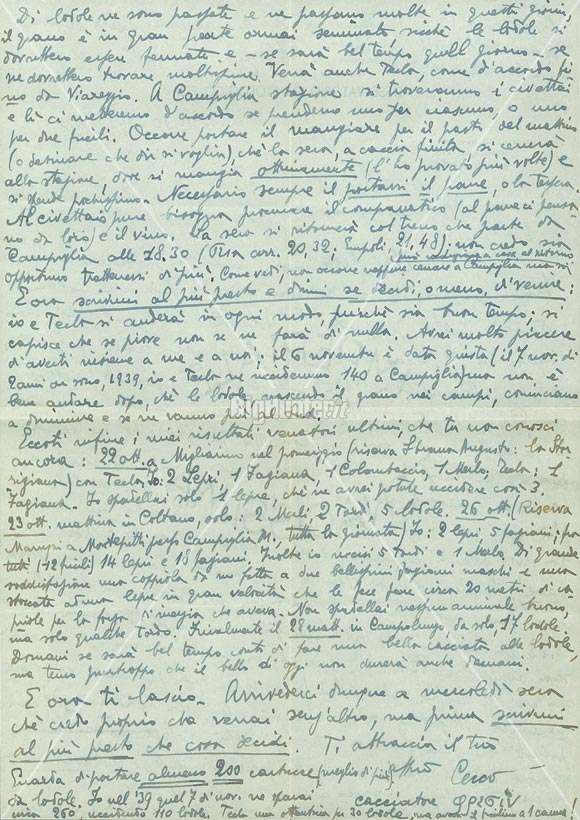 Di lodole ne sono passate e ne passano molte in questi giorni,
il grano è in gran parte ormai seminato sicchè le lodole si
dovrebbero essere fermate e - se sarà bel tempo quel giorno - se
ne dovrebbero trovare moltissime. Verrà anche Tecla, come d'accordo fi
no da Viareggio. A Campiglia stazione si troveranno i civettai
e lì ci metteremo d'accordo se prenderne uno per ciascuno o uno
per due fucili. Occorre portare il mangiare per il pasto del mattino
(o desinare che dir si voglia), chè la sera, a caccia finita si cenerà
alla stazione, dove si mangia ottimamente (l'ho provato più volte) e
si spende pochissimo. Necessario sempre il portarsi il pane, o la tessera.
Al civettaio pure bisogna procurare il companatico (al pane ci pensa
no da loro) e il vino. La sera si ritornerà col treno che parte da
Campiglia alle 18.30 (Pisa arr. 20,32, Empoli 21,43); non credo sia
opportuno trattenersi di più. Come vedi, non occorre neppure cenare a Campiglia ma si
può a casa al ritorno
E ora scrivimi al più presto e dimmi se decidi, o meno, di venire:
io e Tecla si anderà in ogni modo, purchè sia buon tempo; si
capisce che se piove non se ne farà di nulla. Avrei molto piacere
d'averti insieme a me e a noi; il 6 novembre è data giusta (il 7 nov. di
2 anni or sono, 1939, io e Tecla ne uccidemmo 140 a Campiglia) ma non è
bene andare dopo, chè le lodole, nascendo il grano nei campi, cominciano
a diminuire e se ne vanno
Eccoti infine i miei risultati venatori ultimi, che tu non conosci
ancora: 22 ott. a Migliarino nel pomeriggio (riserva Sbrana Augusto: la Ster
pigiana) con Tecla. Io: 2 Lepri, 1 Fagiana, 1 Colombaccio, 1 Merlo; Tecla: 1
Fagiana. Io spadellai solo 1 lepre, chè ne avrei potute uccidere così 3.
23 ott. mattina in Coltano, solo: 2 Merli, 2 Tordi, 5 lodole. 26 ott. (Riserva
a Montepitti presso Campiglia M., tutta la giornata) Io: 2 lepri, 5 fagiani; fra
tutti (12 fucili) 14 lepri e 18 fagiani. Inoltre io uccisi 5 tordi e 1 Merlo. Di grande
soddisfazione una coppiola da me fatta a due bellissimi fagiani maschi e una
stoccata ad una lepre in gran velocità che le fece fare circa 20 metri di ca
priole per la forza d'inerzia che aveva. Non spadellai nessun animale buono,
ma solo qualche tordo. Finalmente il 28 matt. in Campolungo, da solo, 17 lodole.
Domani se sarà bel tempo conto di fare una bella cacciata alle lodole,
ma temo purtroppo che il bello di oggi non durerà anche domani.
E ora ti lascio. Arrivederci dunque a mercoledì sera
chè credo proprio che verrai senz'altro, ma prima scrivimi
al più presto che cosa decidi. Ti abbraccia il tuo
aff.mo Cecco
Guarda di portare almeno 200 cartucce (meglio di più)
da lodole. Io nel '39 quel 7 di nov. ne sparai
cacciatore
circa 260, uccidendo 110 lodole. Tecla una ottantina per 30 lodole, ma aveva il fucilino a 1 canna!